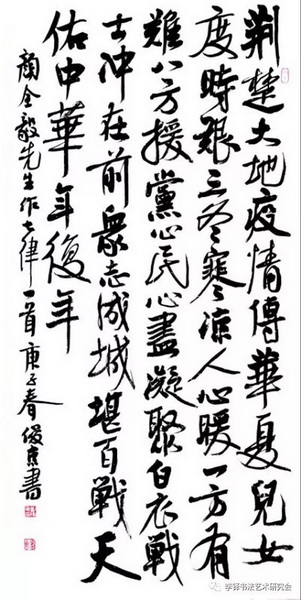 荆楚大地疫情傳華夏兒女
度時艱三冬寒凉人心暖一方有
難八方援黨心民心盡凝聚白衣戰
士冲在前衆志成城堪百戰天
佑中華年復年
顏全毅先生作七律一首庚子春俊京書
书法艺术研究会